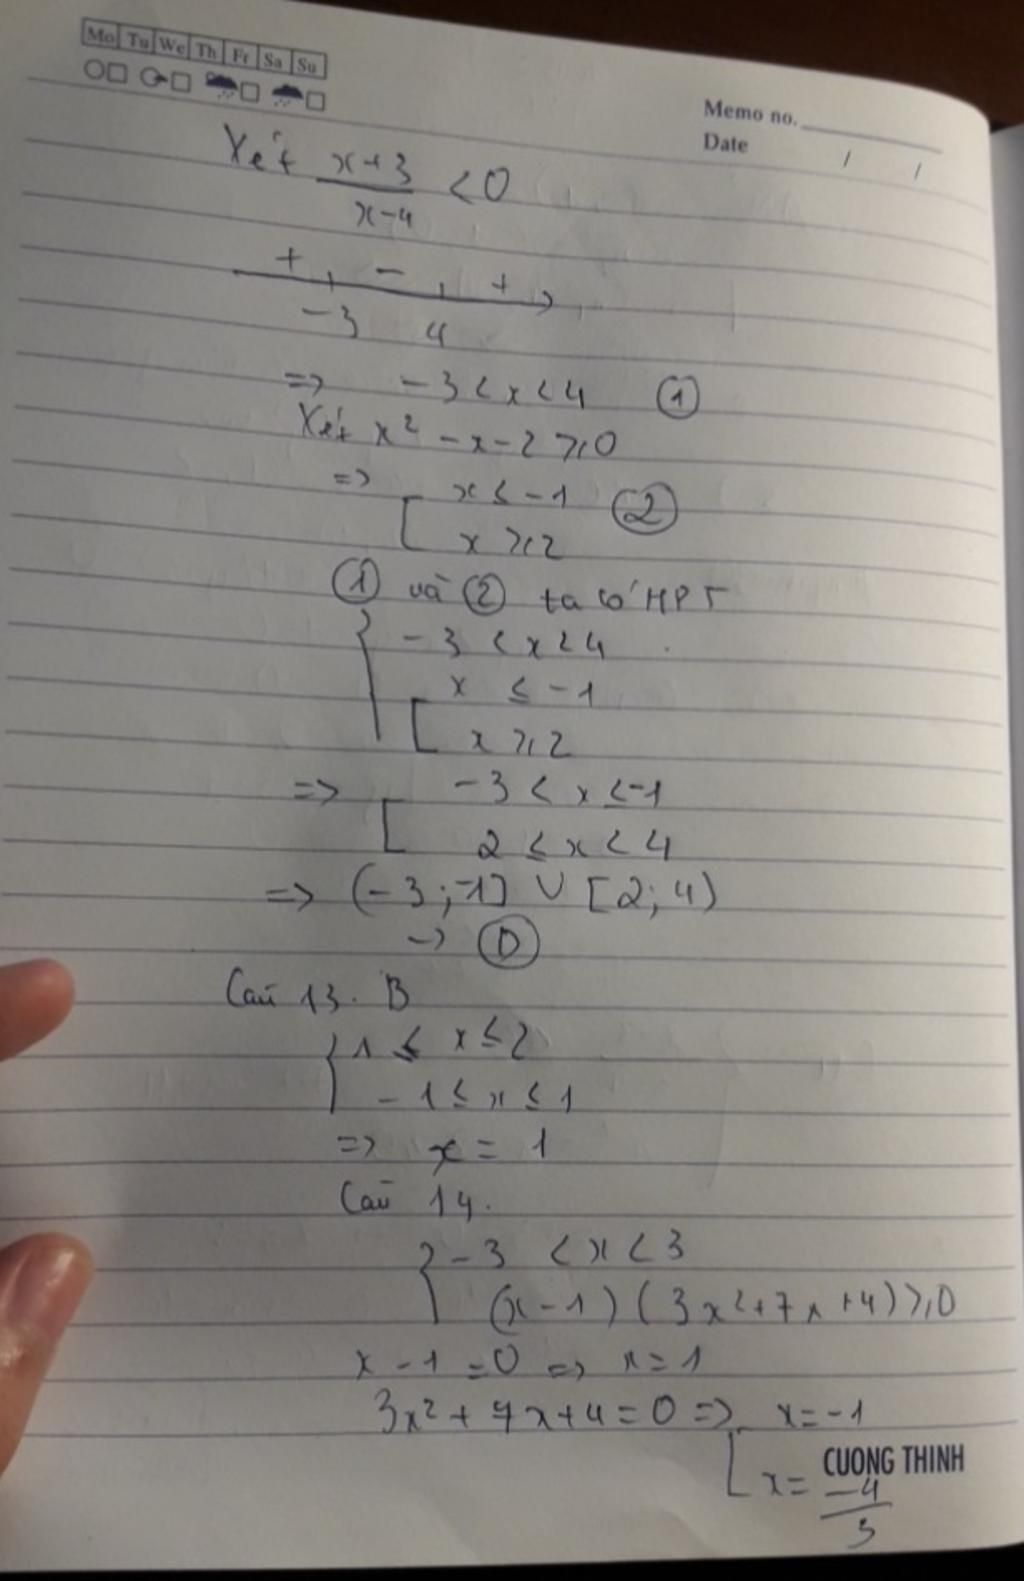 Mo Tu We Th Fr Sa Su
Memo no.
Date / /
Xét x+3/x-4 < 0
+ - +
-3 4
=> -3 < x < 4 ①
Xét x² - x - 2 ≥ 0
=> [ x ≤ -1 ②
x ≥ 2
① và ② ta có HPT
{ -3 < x < 4
[ x ≤ -1
x ≥ 2
=> [ -3 < x ≤ -1
2 ≤ x < 4
=> (-3; -1] ∪ [2; 4)
-> Ⓓ
Câu 13. B
{ 1 ≤ x ≤ 2
-1 ≤ x ≤ 1
=> x = 1
Câu 14.
{ -3 < x < 3
(x-1)(3x²+7x+4) ≥ 0
x - 1 = 0 => x = 1
3x² + 7x + 4 = 0 => [ x = -1
CUONG THINH
x = -4/3